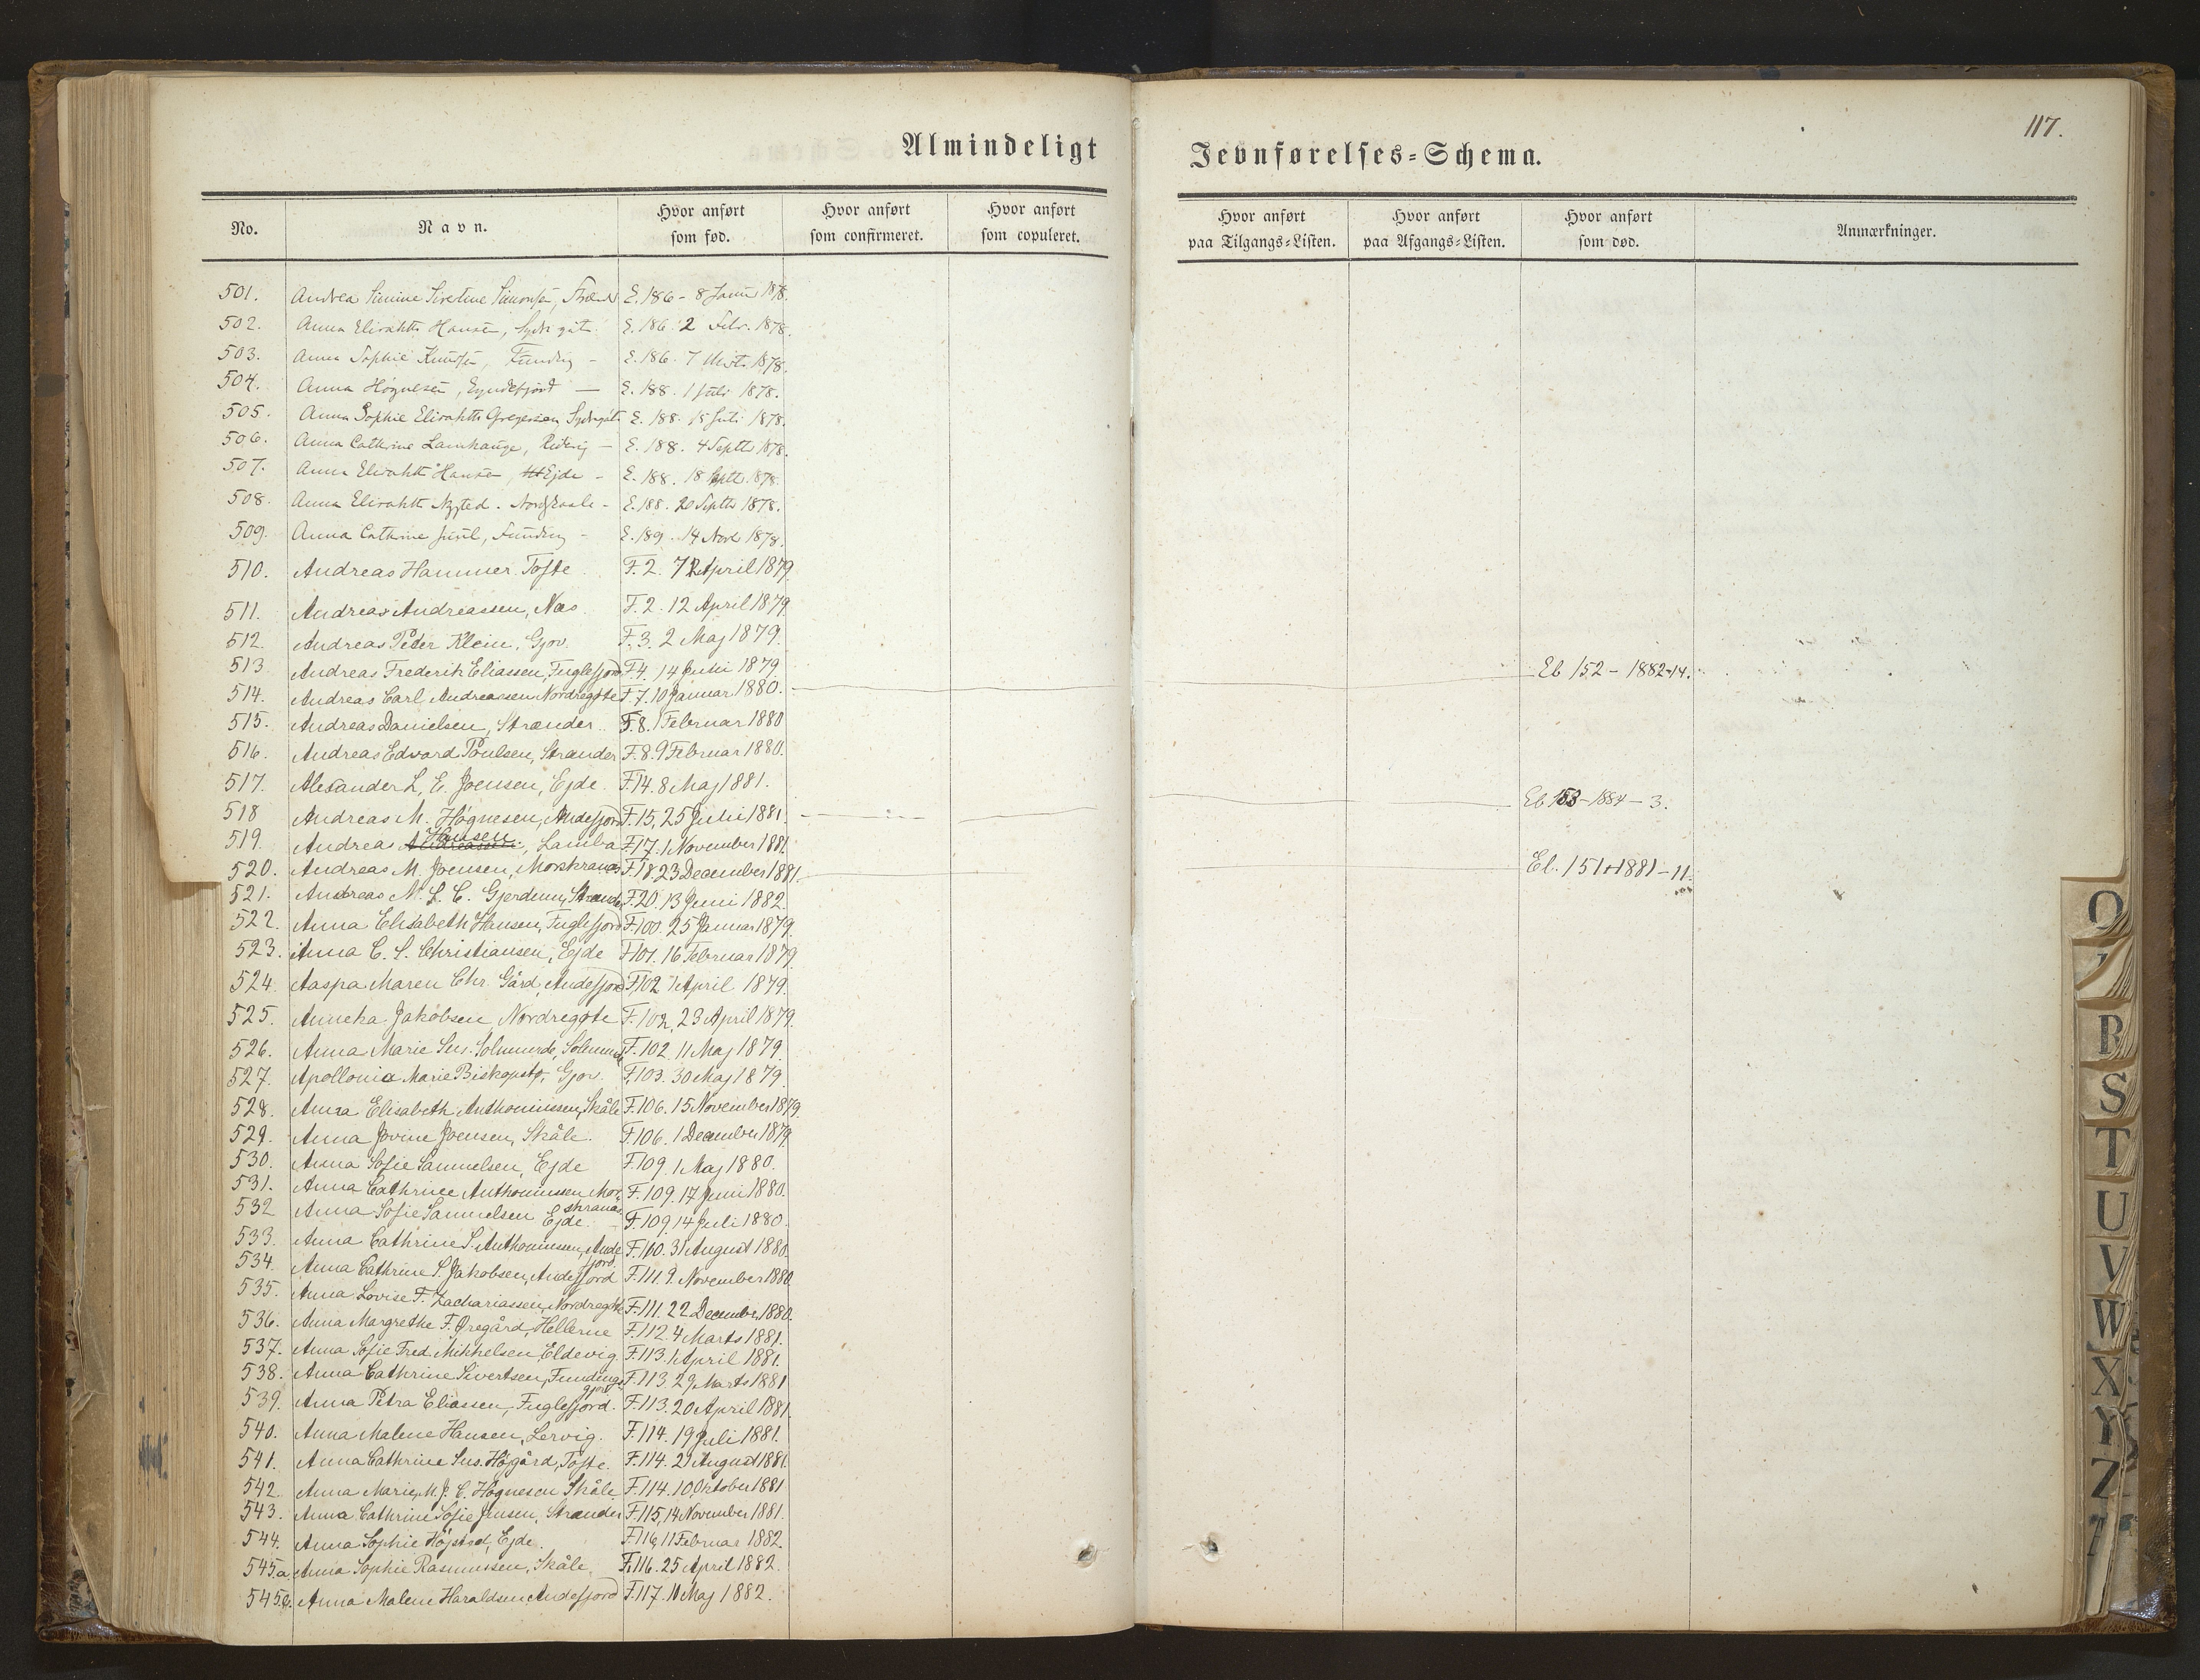 117.
Almindeligt Jevnførelses=Schema.
No. Navn. Hvor anført som fød. Hvor anført som confirmeret. Hvor anført som copuleret. Hvor anført paa Tilgangs=Listen. Hvor anført paa Afgangs=Listen. Hvor anført som død. Anmærkninger.
501. Andrea Simine Simonsen, E. 186 - 8 Janu 1878.
502. Anna Elisabeth Hansen, Sydrgøte. E. 186. 2 Febr. 1878.
503. Anna Sophie Knudsen, Funding - E. 186. 7 Mrts 1878.
504. Anna Høgnesen, Eyndefjord — E. 188. 1 Juli 1878.
505. Anna Sophie Elisabeth Gregersen, Sydrgøte E. 188. 15 Juli 1878.
506. Anna Cathrine Lamhauge, - E. 188. 4 Septb 1878.
507. Anna Elisabeth Hansen, Ejde - E. 188. 18 Septb. 1878.
508. Anna Elisabeth Nysted. Nordskaale - E. 188. 20 Septbr 1878.
509. Anna Cathrine Juul, Funding - E. 189. 14 Novb 1878.
510. Andreas Hammer Tofte F. 2. April 1879.
511. Andreas Andreassen, Næs. F. 2. 12 April 1879.
512. Andreas Peter Klein, Gjov. F. 3. 2 Maj 1879.
513. Andreas Frederik Eliassen, Fuglefjord F. 4. 14 Juni 1879
514. Andreas Carl Andreassen Nordregøte F. 7. 10 Januar 1880. Eb 152 - 1882-14.
515. Andreas Danielsen, Strænder. F. 8. 1 Februar 1880
516. Andreas Edvard Poulsen, Strænder F. 8. 9 Februar 1880.
517. Alexander L. E. Joensen, Ejde. F. 14. 8 Maj 1881.
518 Andreas M. Høgnesen, Andefjord F. 15, 25 Juli 1881. Eb 153-1884-3.
519. Andreas Andreassen Hansen, Lamba F. 17. 1 November 1881.
520. Andreas M. Joensen, Morskranes F. 18 23 December 1881. Eb. 151-1881-11.
521. Andreas M. L. C. Gjerdum, Strænder F. 20. 13 Juni 1882.
522. Anna Elisabeth Hansen, Fuglefjord F. 100. 25 Januar 1879.
523. Anna C. S. Christiansen, Ejde F. 101. 16 Februar 1879.
524. Aaspa Maren Chr. Gård, Andefjord F. 102 7 April 1879.
525. Anneka Jakobsen Nordregøte F. 102, 23 April 1879.
526. Anna Marie Sus. Solmunde, F. 102. 11 Maj 1879.
527. Apollonia Marie Biskopstø, Gjov. F. 103. 30 Maj 1879.
528. Anna Elisabeth Anthoniussen, Skåle F. 106. 15 November 1879
529. Anna Jovine Joensen, Skåle. F. 106. 1 December 1879.
530. Anna Sofie Samuelsen, Ejde F. 109. 1 Maj 1880.
531. Anna Cathrine Anthoniussen Mor-
skranes F. 109. 17 Juni 1880.
532 Anna Sofie Samuelsen Ejde. F. 109. 14 Juli 1880.
533. Anna Cathrine S. Anthoniussen, Ande
fjord F. 110. 31 August 1880.
534. Anna Cathrine S. Jakobsen, Andefjord F. 111. 9. November 1880.
535. Anna Lovise F. Zachariassen, Nordregøte F. 111. 22 December 1880.
536. Anna Margrethe F. Øregård, Hellerne F. 112. 4 Marts 1881.
537. Anna Sofie Fred. Mikkelsen Eldevig F. 113. 1 April 1881.
538. Anna Cathrine Sivertsen, Fundings-
fjord F. 113. 29 Marts 1881
539. Anna Petra Eliassen, Fuglefjord. F. 113. 20 April 1881.
540. Anna Malene Hansen, Lervig. F. 114. 19 Juli 1881.
541. Anna Cathrine Sus. Høgård, Tofte. F. 114. 21 August 1881.
542. Anna Marie M. J. C. Høgnesen Skåle F. 114. 10. Oktober 1881
543. Anna Cathrine Sofie Jensen, Strænder F. 115, 14 November 1881.
544. Anna Sophie Højsted, Ejde. F. 116, 11 Februar 1882.
545.a Anna Sophie Rasmussen, Skåle. F. 116. 25 April 1882.
545.b. Anna Malene Haraldsen Andefjord F. 117. 10 Maj 1882.
Q
R
S
T
U
V
W
X
Y
Z